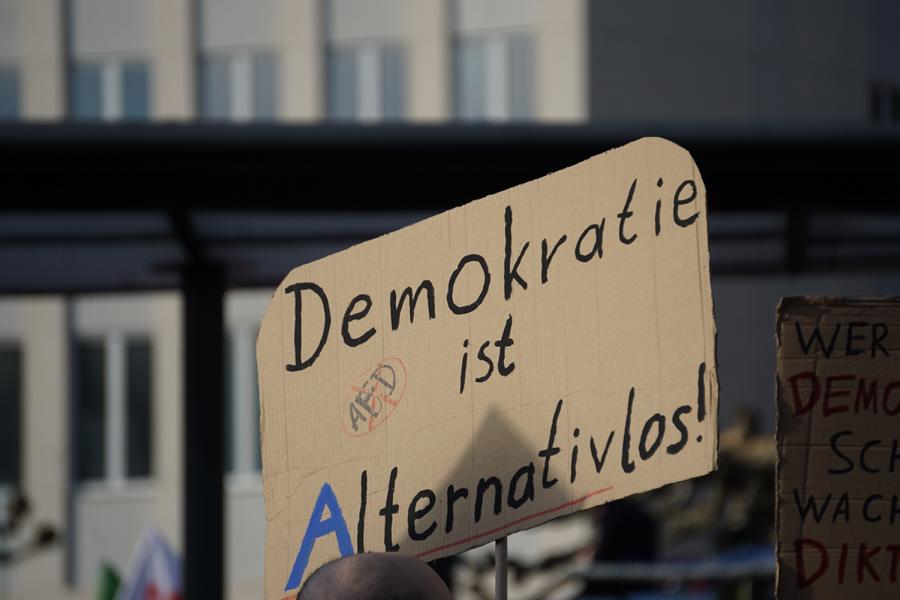 Demokratie
ist
AFD
Alternativlos!
WER
DEMO
SCH
WACH
DIKT